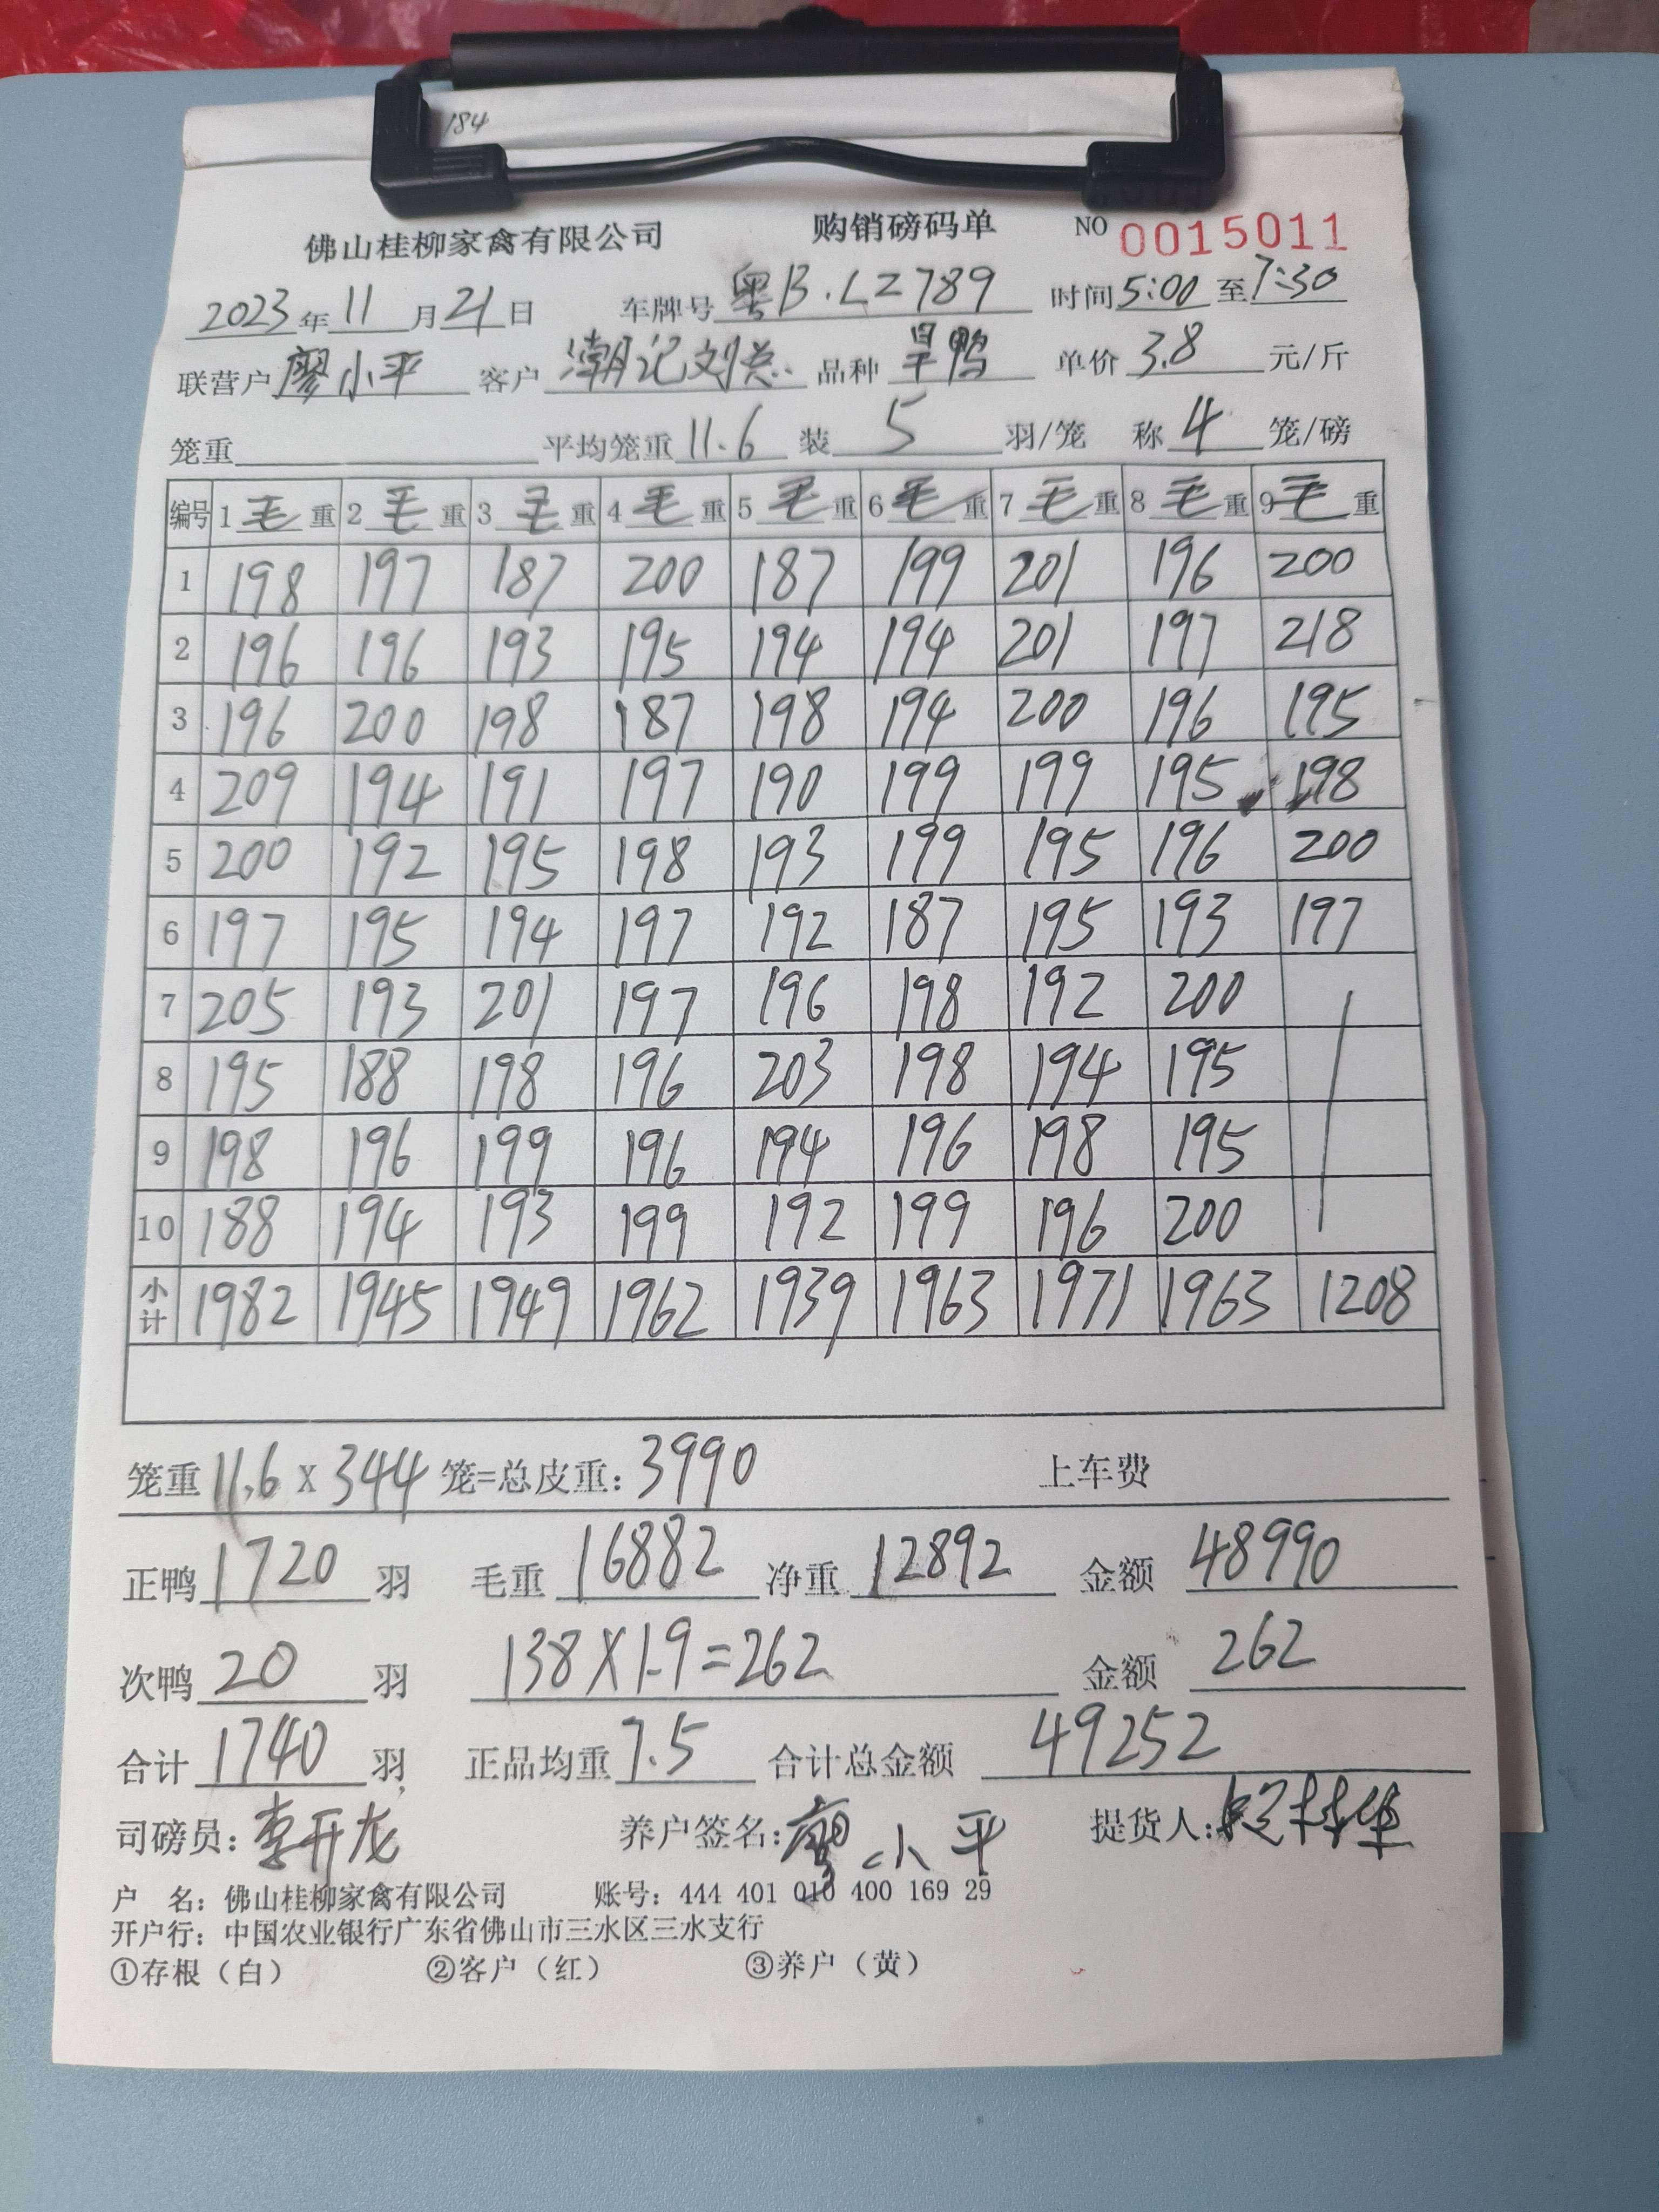 184
佛山桂柳家禽有限公司 购销磅码单 NO 0015011
2023年11月21日 车牌号 粤B.LZ789 时间5:00至7:30
联营户廖小平 客户 潮记刘 品种 旱鸭 单价 3.8 元/斤
笼重 平均笼重11.6 装 5 羽/笼 称 4 笼/磅
编号 1毛重 2毛重 3毛重 4毛重 5毛重 6毛重 7毛重 8毛重 9毛重
1 198 197 187 200 187 199 201 196 200
2 196 196 193 195 194 194 201 197 218
3 196 200 198 187 198 194 200 196 195
4 209 194 191 197 190 199 199 195 198
5 200 192 195 198 193 199 195 196 200
6 197 195 194 197 192 187 195 193 197
7 205 193 201 197 196 198 192 200
8 195 188 198 196 203 198 194 195
9 198 196 199 196 194 196 198 195
10 188 194 193 199 192 199 196 200
小计 1982 1945 1949 1962 1939 1963 1971 1963 1208
笼重11.6 X 344 笼=总皮重: 3990 上车费
正鸭1720羽 毛重 16882 净重 12892 金额 48990
次鸭 20 羽 138X1.9=262 金额 262
合计 1740 羽 正品均重7.5 合计总金额 49252
司磅员: 李开龙 养户签名: 廖小平 提货人:
户 名: 佛山桂柳家禽有限公司 账号: 444 401 010 400 169 29
开户行: 中国农业银行广东省佛山市三水区三水支行
①存根(白) ②客户(红) ③养户(黄)